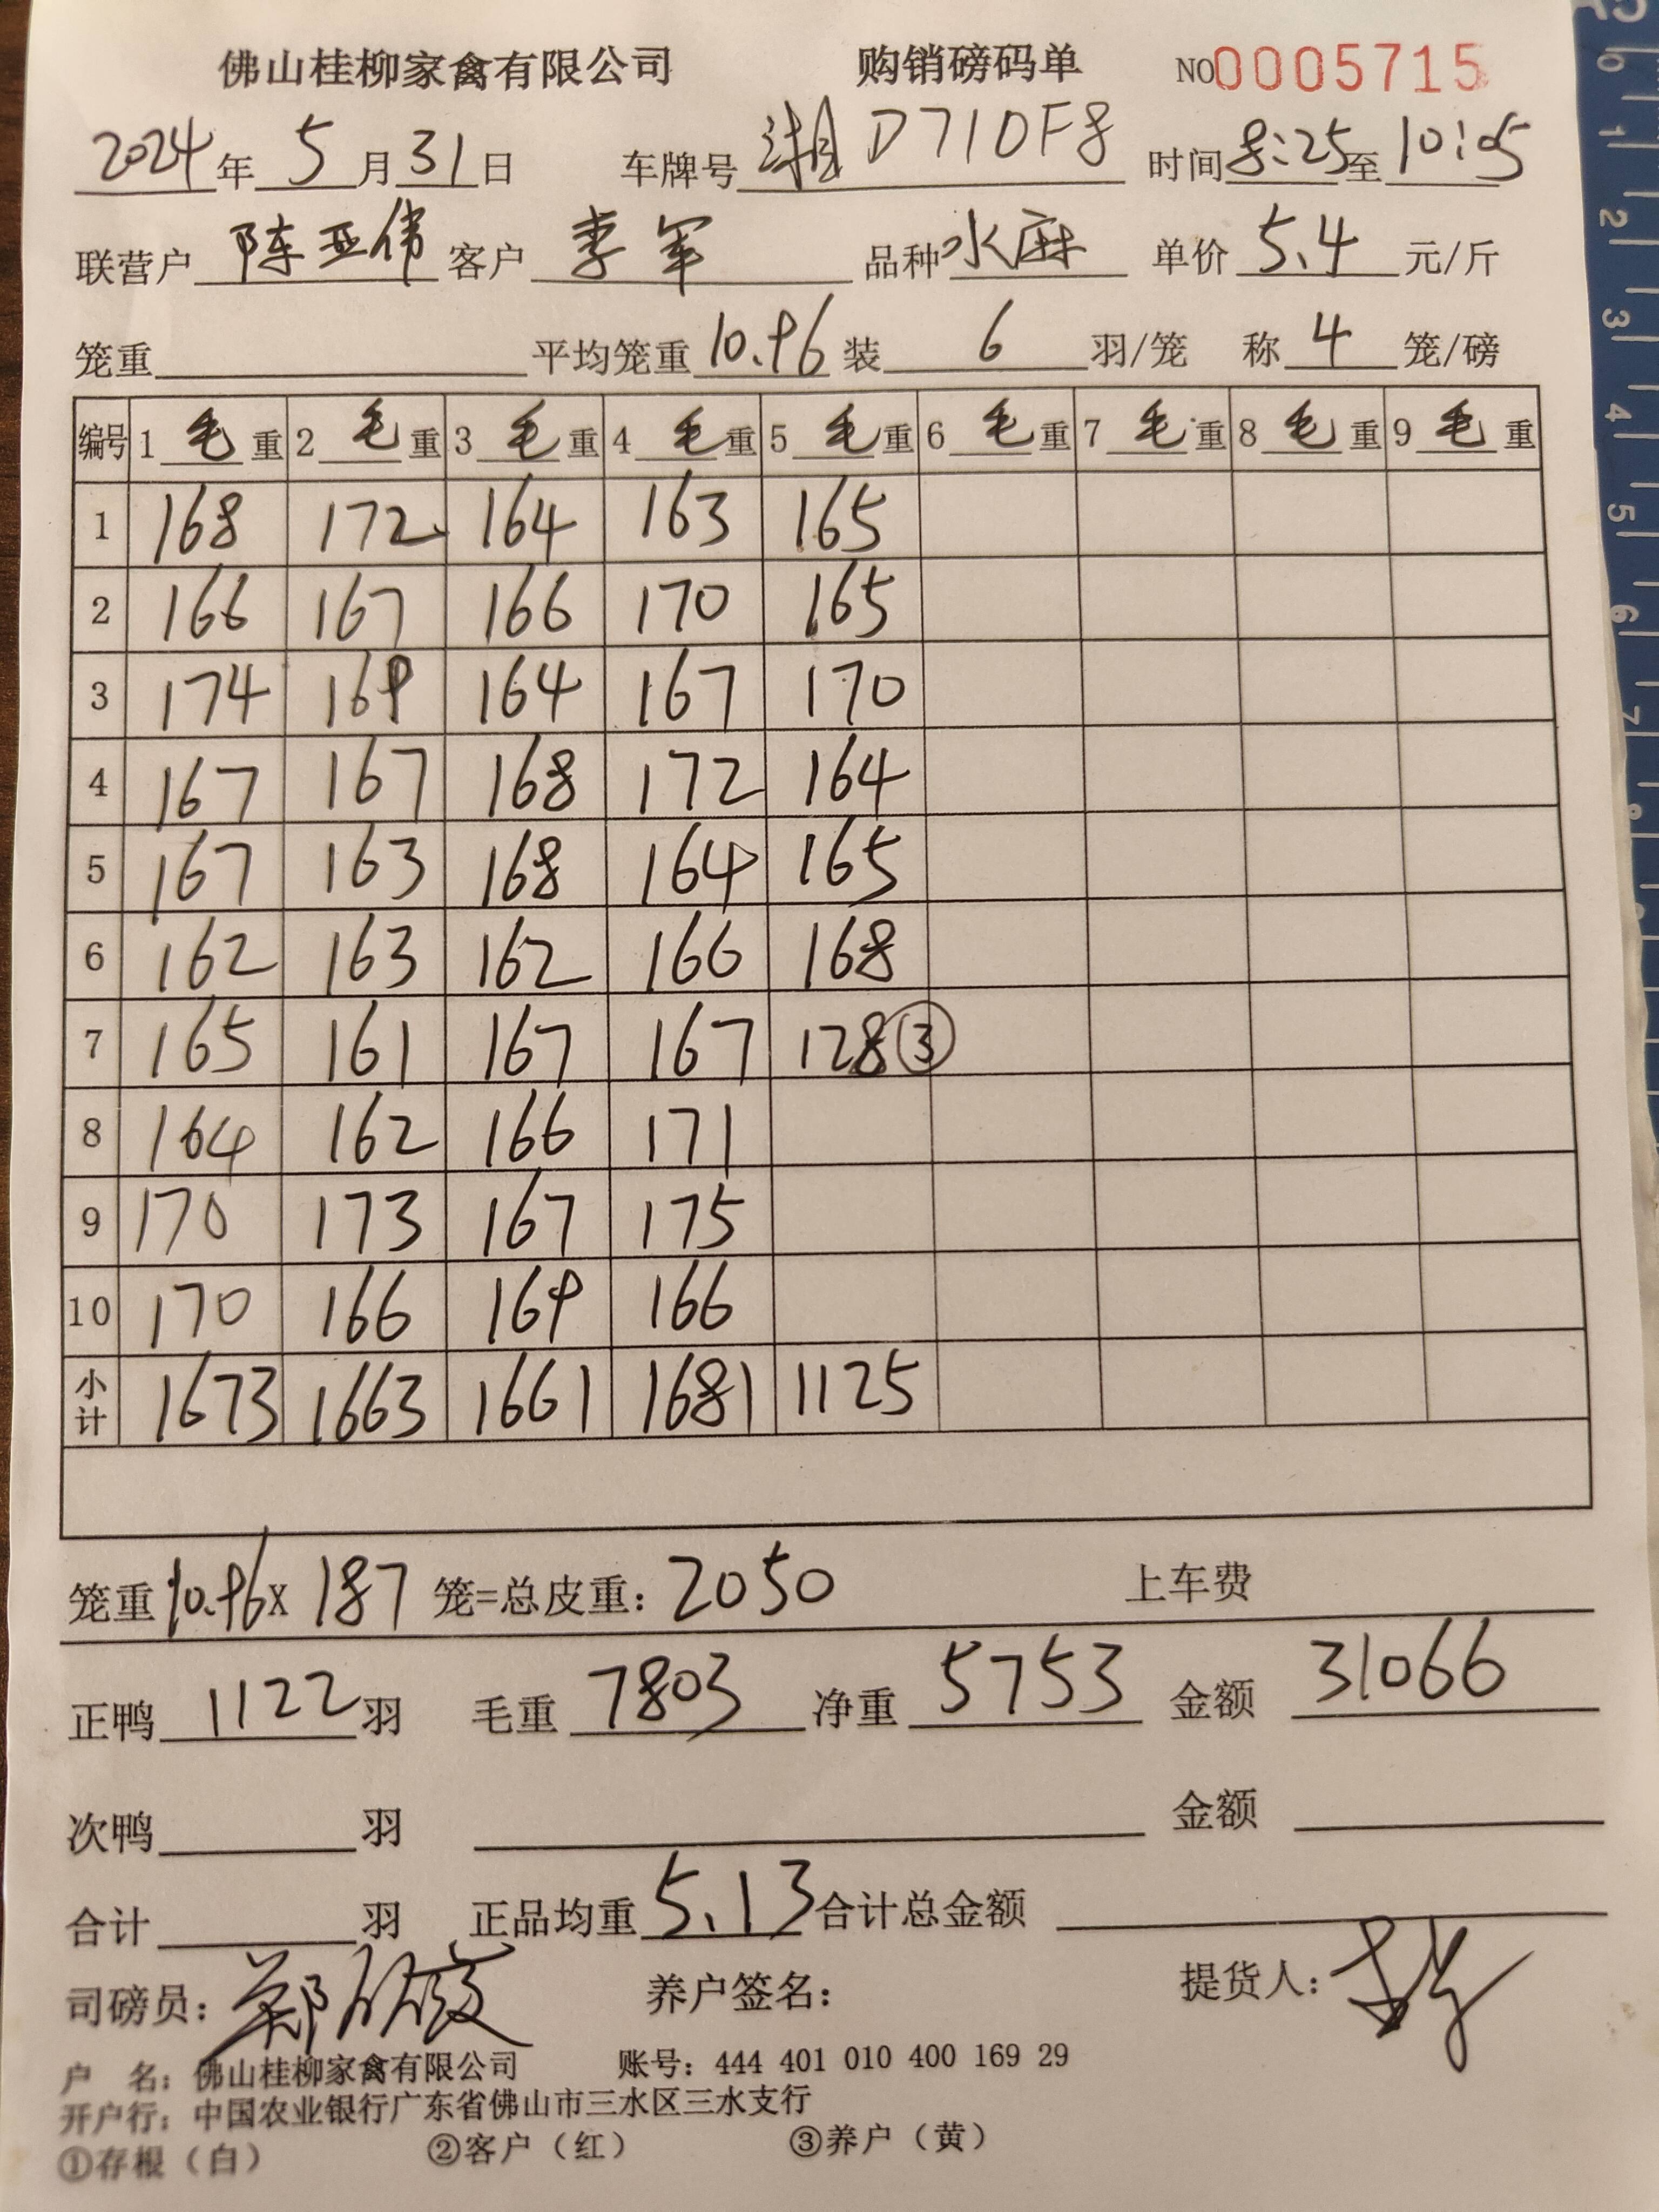 佛山桂柳家禽有限公司 购销磅码单 NO0005715
2024年 5 月 31 日 车牌号 湘D710F8 时间 8:25 至 10:05
联营户 陈亚伟 客户 李军 品种 水麻 单价 5.4 元/斤
笼重 平均笼重 10.96 装 6 羽/笼 称 4 笼/磅
编号 1 毛 重 2 毛 重 3 毛 重 4 毛 重 5 毛 重 6 毛 重 7 毛 重 8 毛 重 9 毛 重
1 168 172 164 163 165
2 166 167 166 170 165
3 174 169 164 167 170
4 167 167 168 172 164
5 167 163 168 164 165
6 162 163 162 166 168
7 165 161 167 167 128③
8 164 162 166 171
9 170 173 167 175
10 170 166 169 166
小计 1673 1663 1661 1681 1125
笼重 10.96 X 187 笼=总皮重: 2050 上车费
正鸭 1122 羽 毛重 7803 净重 5753 金额 31066
次鸭 羽 金额
合计 羽 正品均重 5.13 合计总金额
司磅员: 养户签名: 提货人:
户 名: 佛山桂柳家禽有限公司 账号: 444 401 010 400 169 29
开户行: 中国农业银行广东省佛山市三水区三水支行
①存根（白） ②客户（红） ③养户（黄）